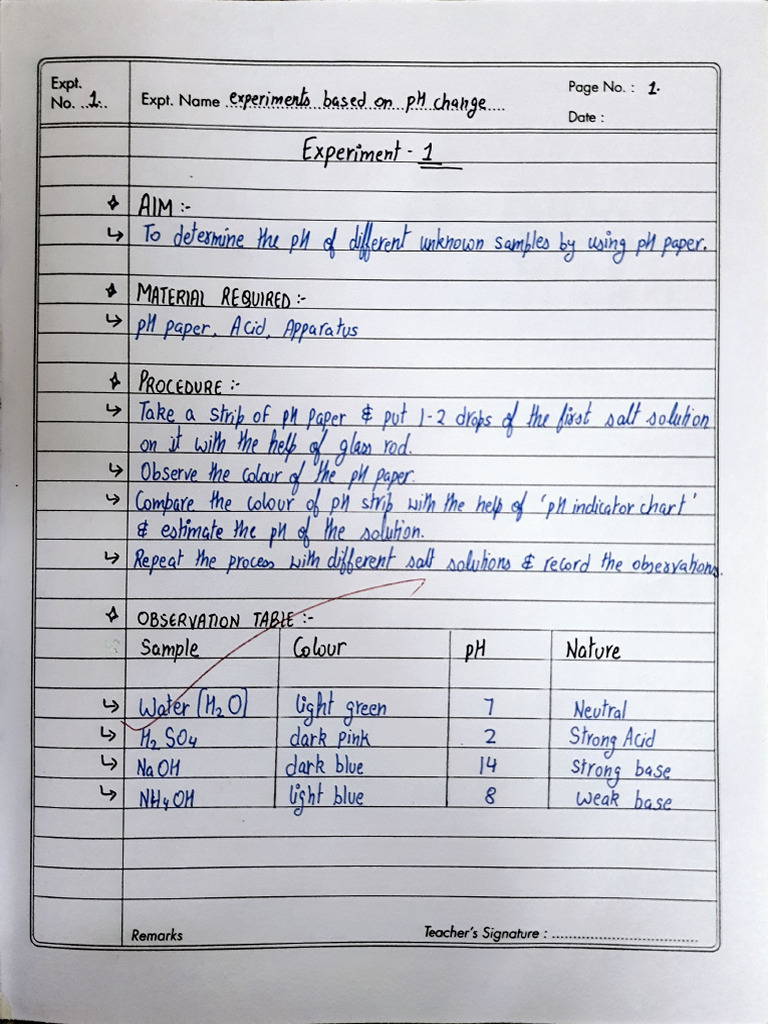 Expt. No. 1. Expt. Name experiments based on pH change Page No. : 1.
Date :
Experiment - 1
AIM :-
↳ To determine the pH of different unknown samples by using pH paper.
MATERIAL REQUIRED :-
↳ pH paper, Acid, Apparatus
PROCEDURE :-
↳ Take a strip of pH paper & put 1-2 drops of the first salt solution
on it with the help of glass rod.
↳ Observe the colour of the pH paper.
↳ Compare the colour of pH strip with the help of 'pH indicator chart'
& estimate the pH of the solution.
↳ Repeat the process with different salt solutions & record the observations.
OBSERVATION TABLE :-
Sample Colour pH Nature
↳ Water [H2O] light green 7 Neutral
↳ H2SO4 dark pink 2 Strong Acid
↳ NaOH dark blue 14 strong base
↳ NH4OH light blue 8 weak base
Remarks Teacher's Signature :